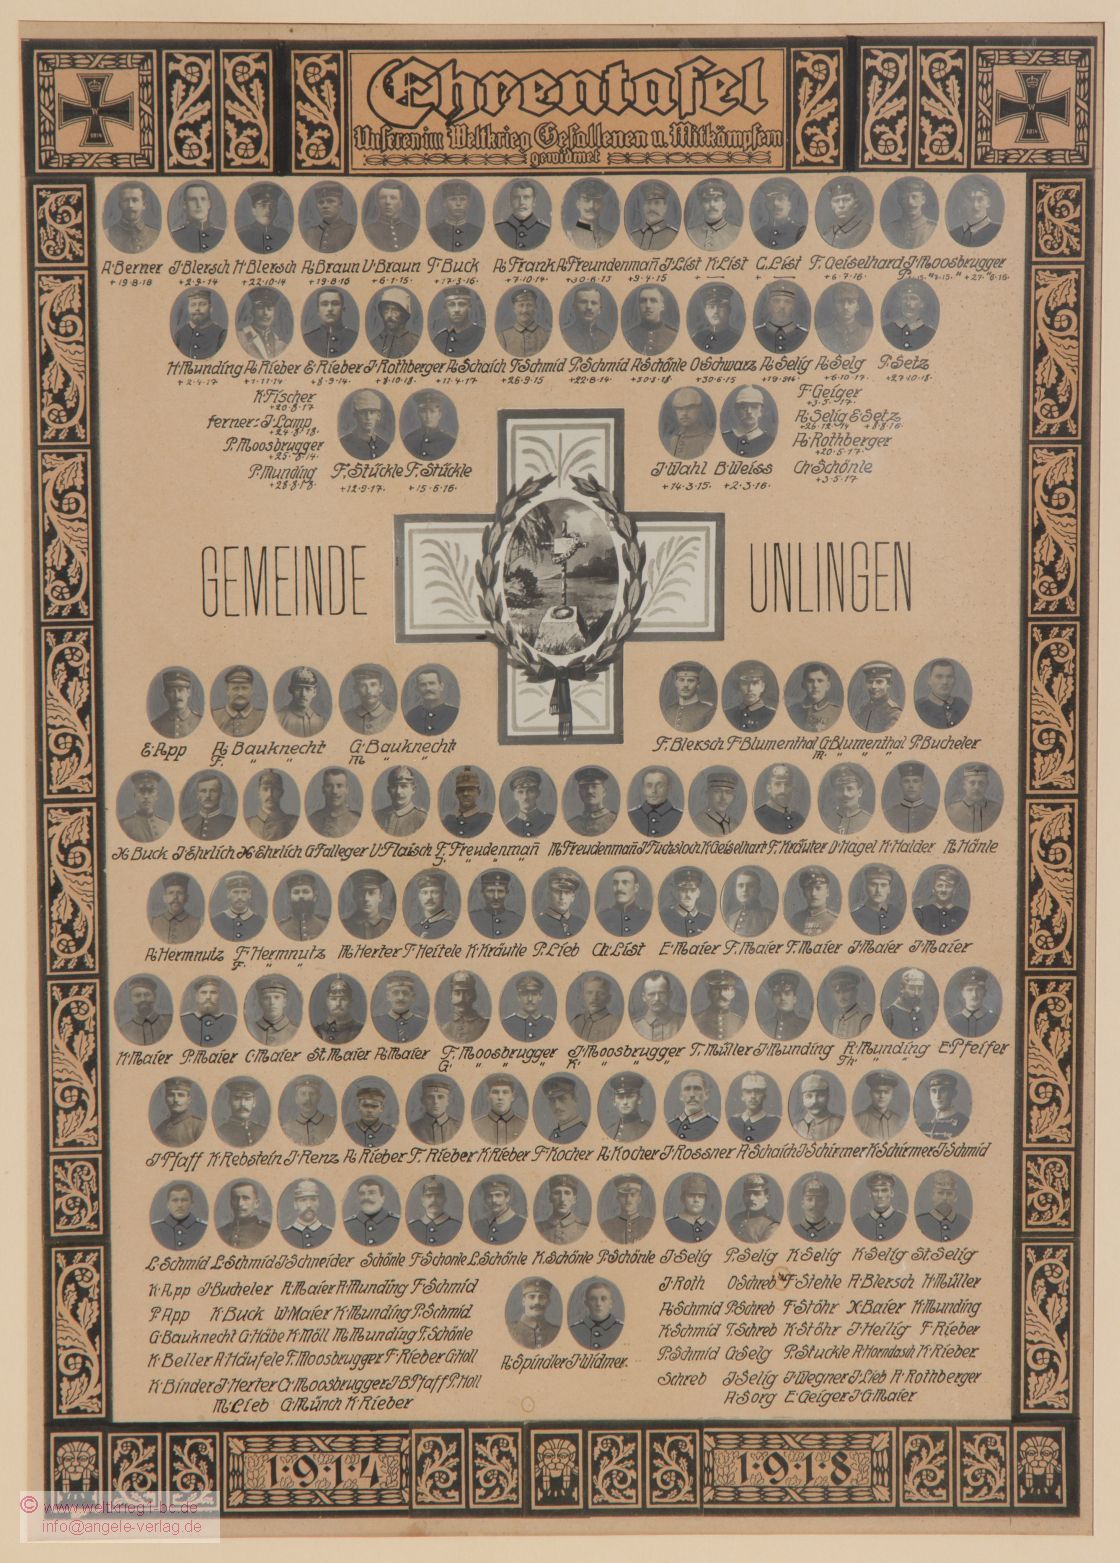 W
1914
Ehrentafel
Unseren im Weltkrieg Gefallenen u. Mitkämpfern
gewidmet
W
1914
A. Berner J. Blersch H. Blersch A. Braun V. Braun F. Buck A. Frank A. Freundenmañ J. List K. List C. List F. Geiselhard J. Moosbrugger
+19.8.18 +2.9.14 +22.10.14 +19.8.16 +6.1.15 +17.3.16 +7.10.14 +30.6.15 +9.4.15 + — + — +6.7.16
H. Munding A. Rieber E. Rieber J. Rothberger A. Schaich J. Schmid P. Schmid A. Schönle O. Schwarz A. Selig A. Selg P. Setz
+2.4.17 +1.11.14 +8.9.14. +8.10.18. +11.4.17 +26.9.15 +22.8.14. +30.8.18. +30.6.15 +6.10.17. +27.10.18.
K. Fischer
+20.8.17
ferner: J. Lamp
+24.8.18.
P. Moosbrugger
+25.8.14.
P. Munding
F. Stückle F. Stückle
+12.9.17. +15.6.16.
J. Wahl B. Weiss
+14.3.15. +2.3.16.
F. Geiger
+3.5.17.
A. Selig E. Setz
+26.12.14 +8.8.16.
A. Rothberger
+20.5.17.
Ch. Schönle
+3.5.17
GEMEINDE UNLINGEN
E. App A. Bauknecht G. Bauknecht F. Blersch F. Blumenthal G. Blumenthal P. Bucheler
F. " " M. " " M. " "
X. Buck J. Ehrlich X. Ehrlich G. Falleger V. Flaisch F. Freudenmañ M. Freudenmañ J. Fuchsloch K. Geiselhart F. Kräuter V. Hagel K. Halder A. Hänle
J. " " "
A. Hermnutz F. Hermnutz M. Herter F. Heitele K. Kräutle P. Lieb Ch. List E. Maier F. Maier F. Maier J. Maier J. Maier
F. " "
K. Maier P. Maier C. Maier St. Maier A. Maier F. Moosbrugger J. Moosbrugger T. Müller J. Munding R. Munding E. Pfeifer
G. " " " K. " " " Th. " "
J. Pfaff K. Rebstein J. Renz A. Rieber F. Rieber K. Rieber F. Kocher A. Kocher J. Rossner A. Schaich J. Schirmer K. Schirmer J. Schmid
L. Schmid L. Schmid J. Schneider Schönle F. Schönle L. Schönle K. Schönle P. Schönle J. Selig P. Selig K. Selig K. Selig St. Selig
K. App J. Bucheler A. Maier A. Munding F. Schmid
P. App K. Buck W. Maier K. Munding P. Schmid
G. Bauknecht G. Häbe K. Möll M. Munding F. Schönle
K. Beller A. Häufele F. Moosbrugger F. Rieber G. Holl
K. Binder J. Herter G. Moosbrugger J. B. Pfaff P. Holl
M. Lieb G. Münch K. Rieber
A. Spindler J. Widmer.
J. Roth O. Schreb F. Stehle A. Blersch H. Müller
A. Schmid P. Schreb F. Stöhr X. Baier K. Munding
K. Schmid T. Schreb K. Stöhr J. Heilig F. Rieber
P. Schmid G. Selg P. Stuckle A. Horndasch K. Rieber
Schreb J. Selig J. Wegner J. Lieb A. Rothberger
A. Sorg E. Geiger J. G. Maier
1·9·1·4 1·9·1·8
© www.weltkrieg1-bc.de
info@angele-verlag.de